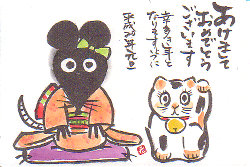 あけまして
おめでとう
ございます
幸多き年と
なりますように
平成二十年元旦